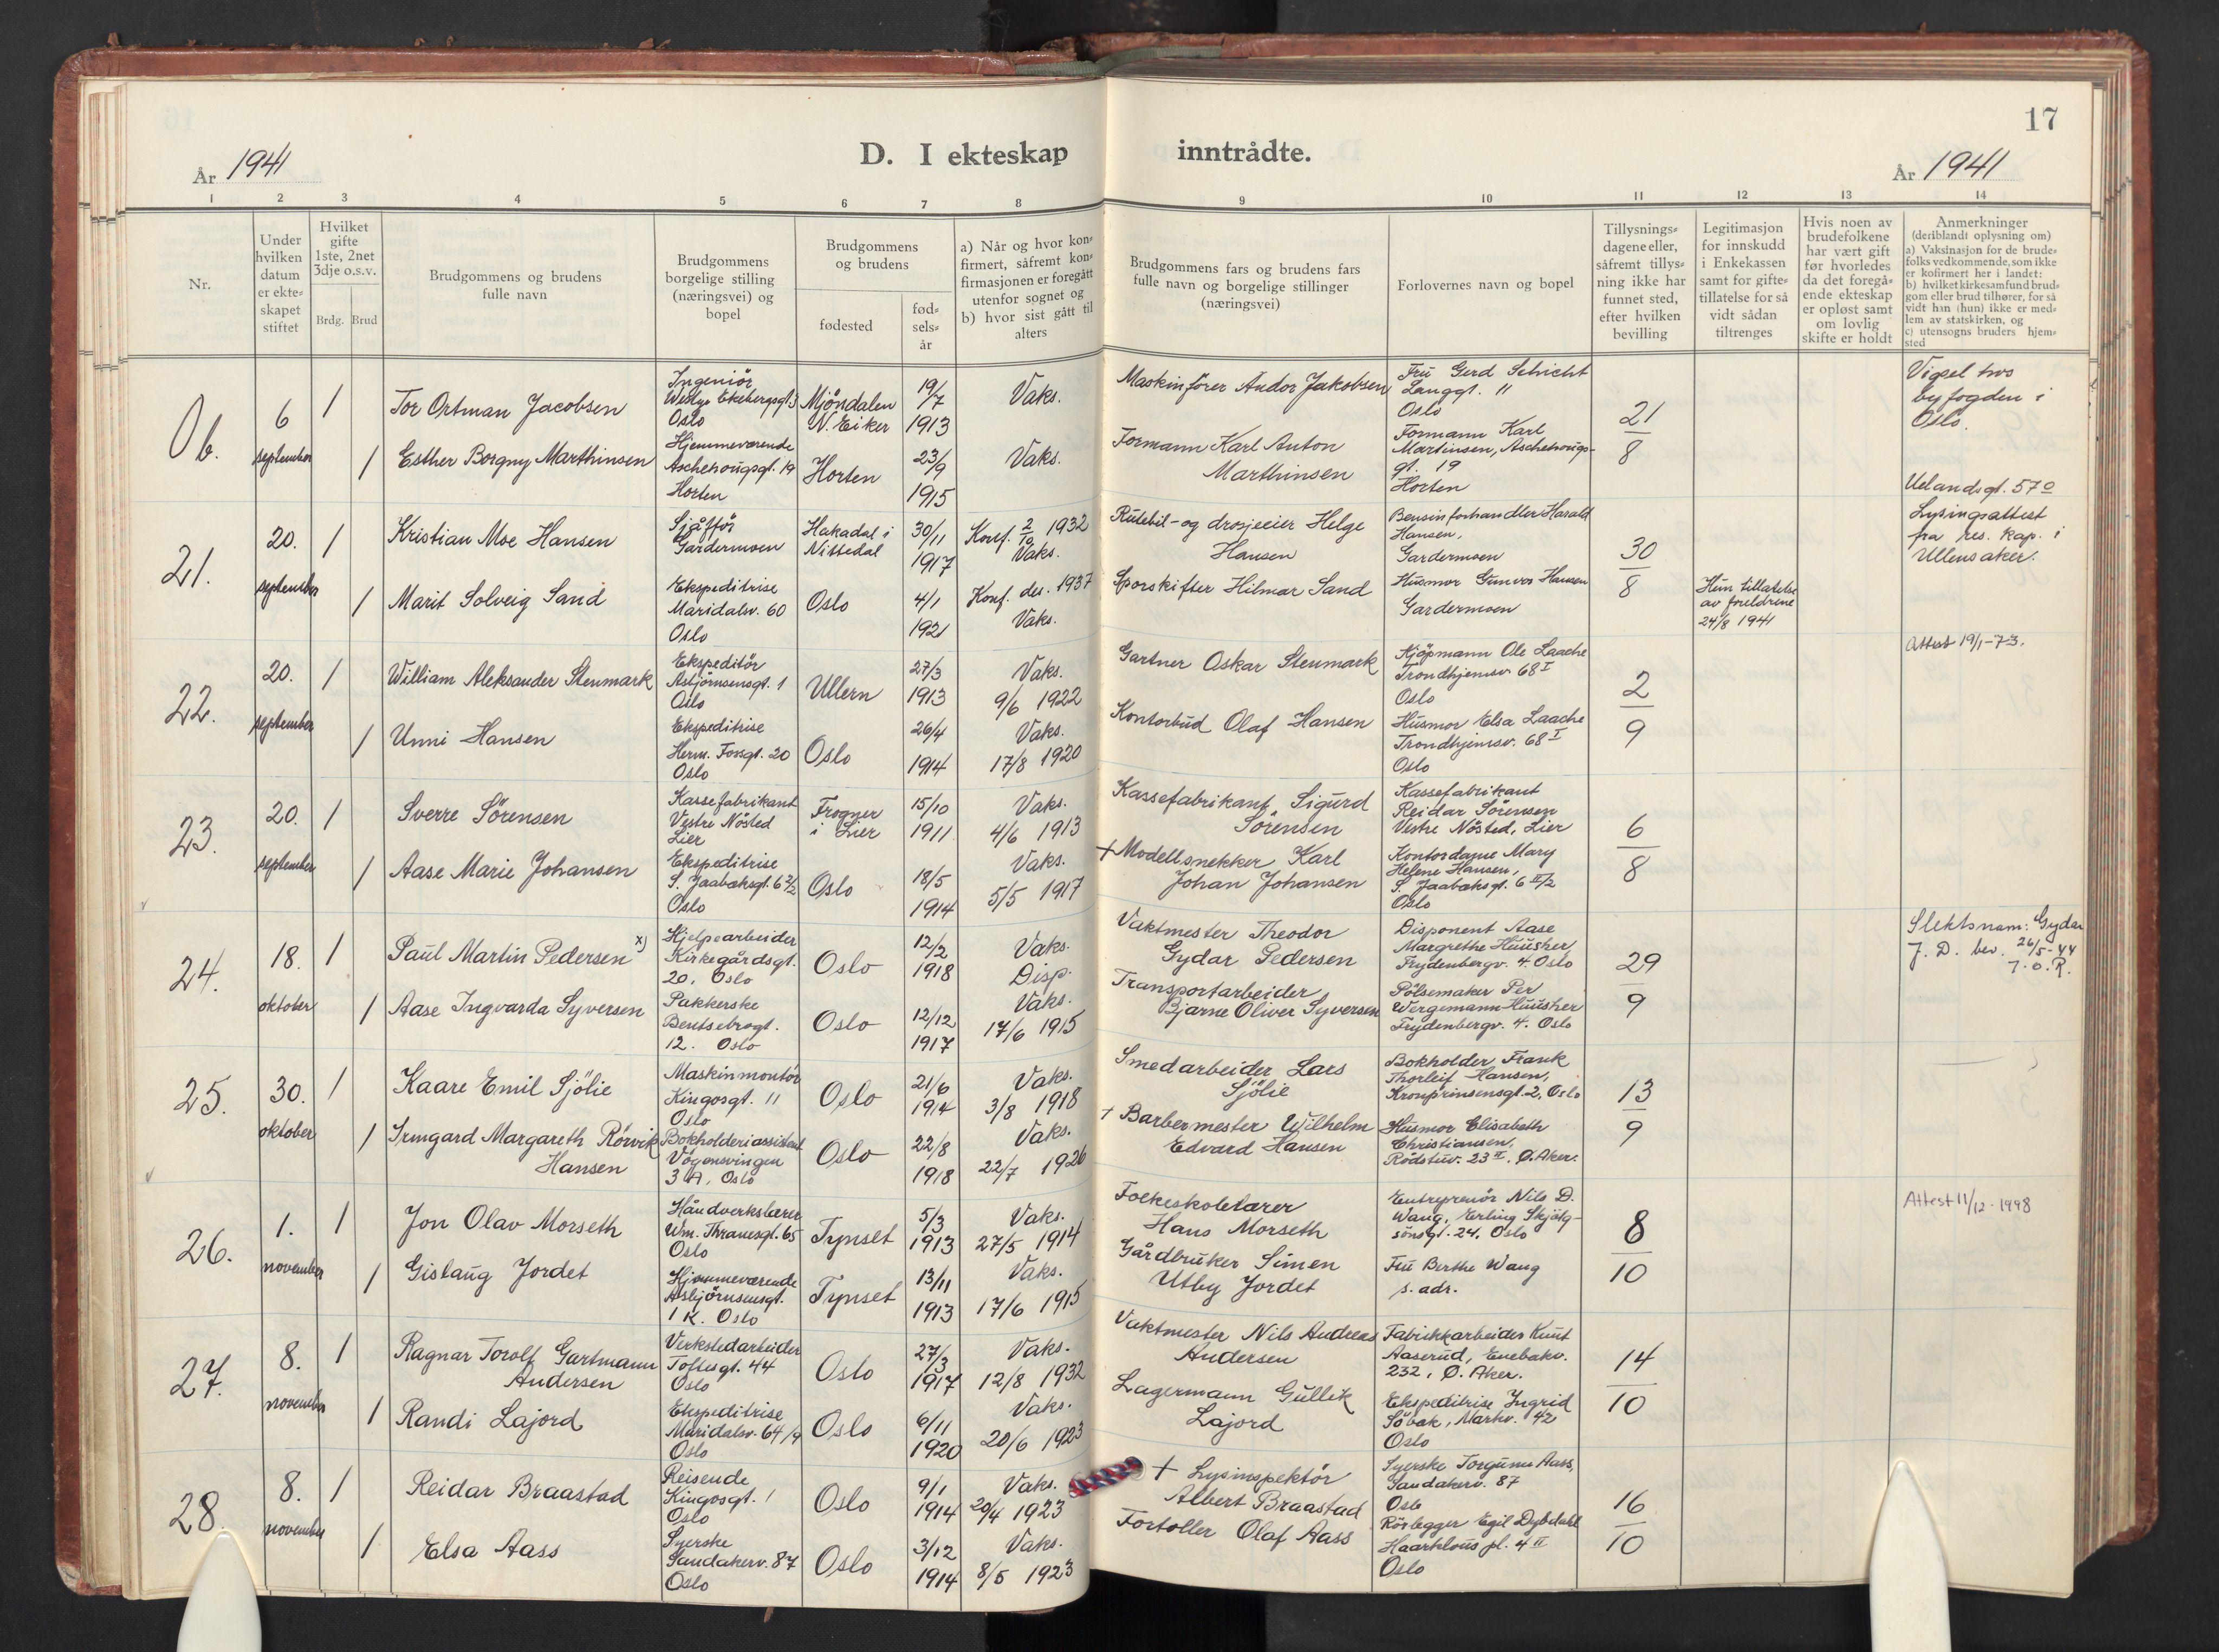 17
D. I ekteskap inntrådte.
År 1941
År 1941
1 2 3 4 5 6 7 8 9 10 11 12 13 14
Nr.
Under
hvilken
datum
er ekte=
skapet
stiftet
Hvilket
gifte
1ste, 2net
3dje o.s.v.
Brdg. Brud
Brudgommens og brudens
fulle navn
Brudgommens
borgelige stilling
(næringsvei) og
bopel
Brudgommens
og brudens
fødested
fød=
sels=
år
a) Når og hvor kon=
firmert, såfremt kon=
firmasjonen er foregått
utenfor sognet og
b) hvor sist gått til
alters
Brudgommens fars og brudens fars
fulle navn og borgelige stillinger
(næringsvei)
Forlovernes navn og bopel
Tillysnings=
dagene eller,
såfremt tillys=
ning ikke har
funnet sted,
efter hvilken
bevilling
Legitimasjon
for innskudd
i Enkekassen
samt for gifte=
tillatelse for så
vidt sådan
tiltrenges
Hvis noen av
brudefolkene
har vært gift
før hvorledes
da det foregå=
ende ekteskap
er opløst samt
om lovlig
skifte er holdt
Anmerkninger
(deriblandt oplysning om)
a) Vaksinasjon for de brude=
folks vedkommende, som ikke
er kofirmert her i landet:
b) hvilket kirkesamfund brud=
gom eller brud tilhører, for så
vidt han (hun) ikke er med=
lem av statskirken, og
c) utensogns bruders hjem=
sted
Ob.
6
september
1
Tor Ortman Jacobsen
Ingeniør
Ekebergsgt. 3
Oslo
Mjöndalen
N. Eiker
19/7
1913
Vaks.
Maskinfører Andor Jakobsen
Fru Gerd Schicht
Langgt. 11
Oslo
21
8
Vigsel hos
byfogden i
Oslo.
1
Esther Borgny Marthinsen
Hjemmeværende
Aschehougsgt. 19
Horten
Horten
23/9
1915
Vaks.
Formann Karl Anton
Marthinsen
Formann Karl
Martinsen, Aschehougs-
gt. 19
Horten
21.
20.
september
1
Kristian Moe Hansen
Sjåffør
Gardermoen
Hakadal i
Nittedal
30/11
1917
Konf. 2/10 1932
Vaks.
Rutebil- og drosjeeier Helge
Hansen
Bensinforhandler Harald
Hansen,
Gardermoen
30
8
Uelandsgt. 57o
Lysingsattest
fra res. kap. i
Ullensaker.
1
Marit Solveig Sand
Ekspeditrise
Maridalsv. 60
Oslo
Oslo
4/1
1921
Konf. des. 1937
Vaks.
Sporskifter Hilmar Sand
Husmor Gunvor Hansen
Gardermoen
Hun tillatelse
av foreldrene
24/8 1941
22.
20.
september
1
William Aleksander Stenmark
Ekspeditør
Asbjørnsensgt. 1
Oslo
Ullern
27/3
1913
Vaks.
9/6 1922
Gartner Oskar Stenmark
Kjøpmann Ole Laache
Trondhjemsv. 68 I
Oslo
2
9
Attest 19/1-73.
1
Unni Hansen
Ekspeditrise
Herm. Fossgt. 20
Oslo
Oslo
26/4
1914
Vaks.
17/8 1920
Kontorbud Olaf Hansen
Husmor Elsa Laache
Trondhjemsv. 68 I
Oslo
23.
20.
september
1
Sverre Sörensen
Kassefabrikant
Vestre Nösted
Lier
Frogner
i Lier
15/10
1911
Vaks.
4/6 1913
Kassefabrikant Sigurd
Sörensen
Kassefabrikant
Reidar Sörensen
Vestre Nösted, Lier
6
8
1
Aase Marie Johansen
Ekspeditrise
S. Jaabæksgt. 6 2/2
Oslo
Oslo
18/5
1914
Vaks.
5/5 1917
+ Modellsnekker Karl
Johan Johansen
Kontordame Mary
Helene Hansen,
S. Jaabæksgt. 6 II/2
Oslo
24.
18.
oktober
1
Paul Martin Pedersen x)
Hjelpearbeider
Kirkegårdsgt.
20. Oslo
Oslo
12/2
1918
Vaks.
Disp.
Vaktmester Theodor
Gydar Pedersen
Disponent Aase
Margrethe Huusher
Frydenbergv. 4. Oslo
29
9
Slektsnam: Gydar
J. D. bev. 26/5-44
J.O.R.
1
Aase Ingvarda Syversen
Pakkerske
Bentsebrogt.
12. Oslo
Oslo
12/12
1917
Vaks.
17/6 1915
Transportarbeider
Bjarne Oliver Syversen
Pölsemaker Per
Wergemann Huusher
Frydenbergv. 4. Oslo
25.
30.
oktober
1
Kaare Emil Sjölie
Maskinmontør
Kingosgt. 11
Oslo
Oslo
21/6
1914
Vaks.
3/8 1918
Smedarbeider Lars
Sjölie
Bokholder Frank
Thorleif Hansen,
Kronprinsensgt. 2, Oslo
13
9
1
Irmgard Margareth Rörvik
Hansen
Bokholderiassistent
Vögnsvingen
3A, Oslo
Oslo
22/8
1918
Vaks.
22/7 1926
+ Barbermester Wilhelm
Edvard Hansen
Husmor Elisabeth
Christiansen,
Rödstuv. 23 II. Ø. Aker.
26.
1.
november
1
Jon Olav Morseth
Håndverkslærer
Wm. Thranesgt. 65
Oslo
Tynset
5/3
1913
Vaks.
27/5 1914
Folkeskolelærer
Hans Morseth
Entreprenör Nils D.
Wang, Erling Skjalg-
sönsgt. 24, Oslo
8
10
Attest 11/12-1998
1
Gislaug Jordet
Hjemmeværende
Asbjörnsensgt.
1 K. Oslo
Tynset
13/11
1913
Vaks.
17/6 1915
Gårdbruker Simen
Utby Jordet
Fru Berthe Wang
s. adr.
27.
8.
november
1
Ragnar Torolf Gartmann
Andersen
Verkstedarbeider
Toftesgt. 44
Oslo
Oslo
27/3
1917
Vaks.
12/8 1932
Vaktmester Nils Andreas
Andersen
Fabrikkarbeider Knut
Aaserud, Enebakv.
232, Ø. Aker.
14
10
1
Randi Lajord
Ekspeditrise
Maridalsv. 64/9
Oslo
Oslo
6/11
1920
Vaks.
20/6 1923
Lagermann Gullik
Lajord
Ekspeditrise Ingrid
Söbak, Markv. 42
Oslo
28.
8.
november
1
Reidar Braastad
Reisende
Kingosgt. 1
Oslo
Oslo
9/1
1914
Vaks.
20/4 1923
+ Lysinspektør
Albert Braastad
Syerske Torgunn Aass,
Sandakerv. 87
Oslo
16
10
1
Elsa Aass
Syerske
Sandakerv. 87
Oslo
Oslo
3/12
1914
Vaks.
8/5 1923
Fortoller Olaf Aass
Rörlegger Egil Dybdahl
Haarklous pl. 4 II
Oslo